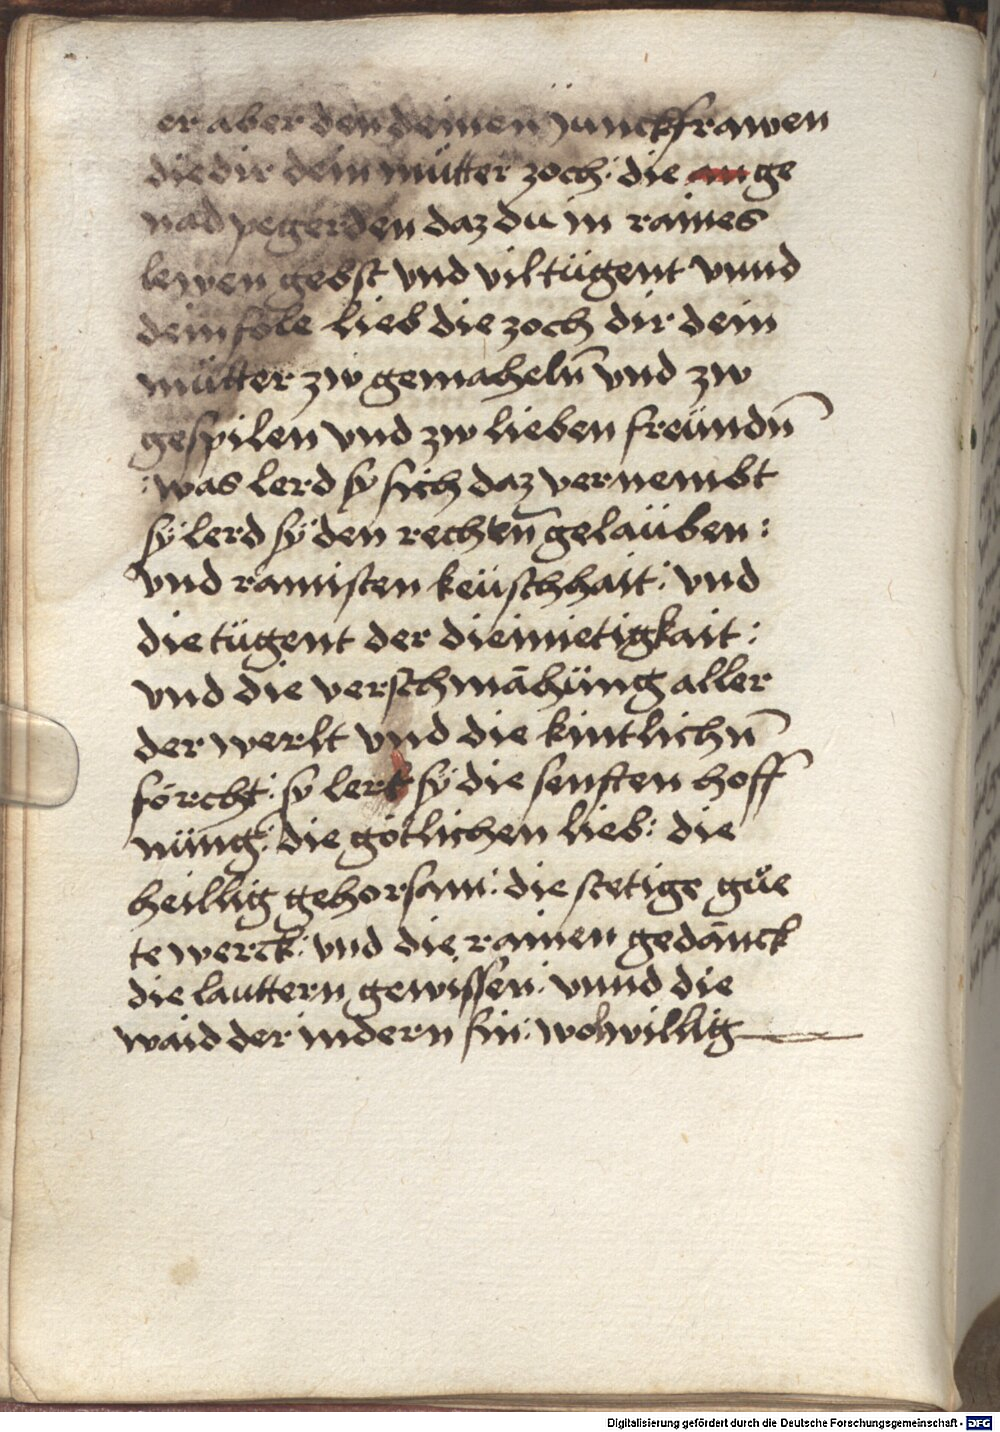 er aber den deinen Jünckfrawen
die dir dein mütter zoch: die an ge
nad pegerden daz du in raines
lewen gebst vnd vil tügent vnnd
dein föle lieb die zoch dir dein
mütter zw gemaheln̄ vnd zw
gespilen vnd zw lieben freündn̄
: was lerd sy sich daz vernembt
sÿ lerd sÿ den rechten̄ gelaüben :
vnd rainisten keüschhait : vnd
die tügent der dieimietigkait :
vnd die verschmāhüng aller
der werlt vnd die kintlichn̄
förcht : sy lert sÿ die senften hoff
nüng : die götlichen lieb : die
heillig gehorsam : die stetige gůe
te werck : vnd die rainen gedānck
die lauttern gewissen : vnnd die
waid der indern sin : wolwillig
Digitalisierung gefördert durch die Deutsche Forschungsgemeinschaft - DFG